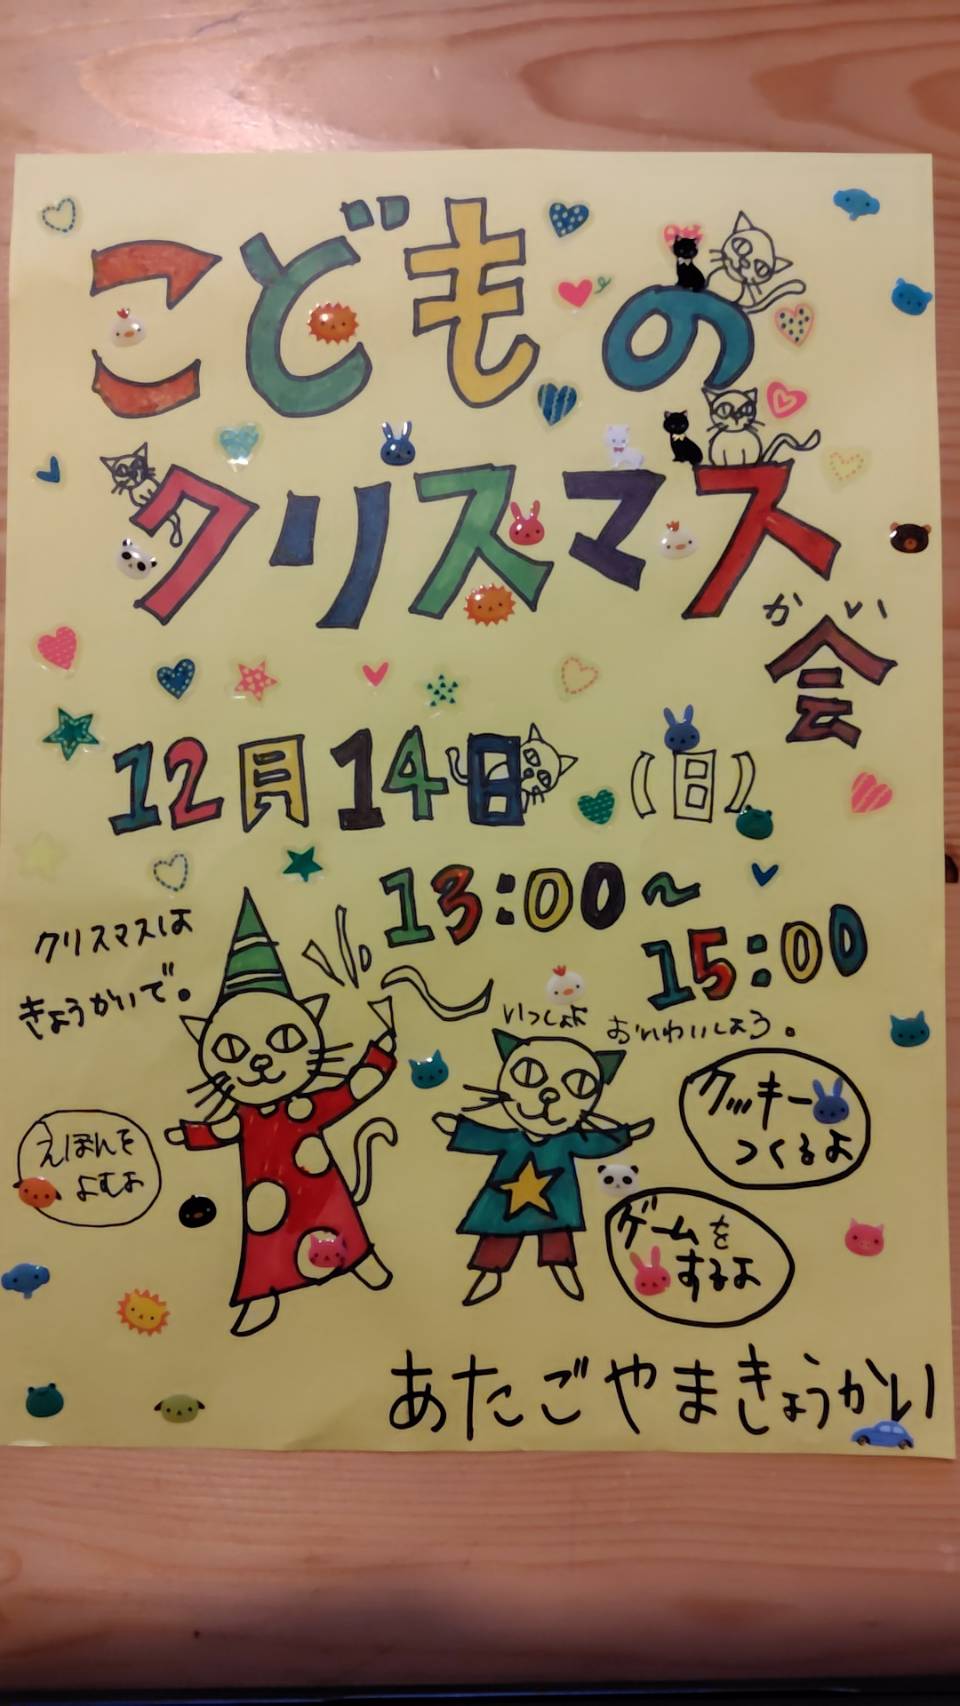 こどもの
クリスマス
かい
会
12月14日(日)
13:00～
15:00
クリスマスは
きょうかいで。
いっしょに おいわいしよう。
えほんを
よむよ
クッキー
つくるよ
ゲームを
するよ
あたごやまきょうかい